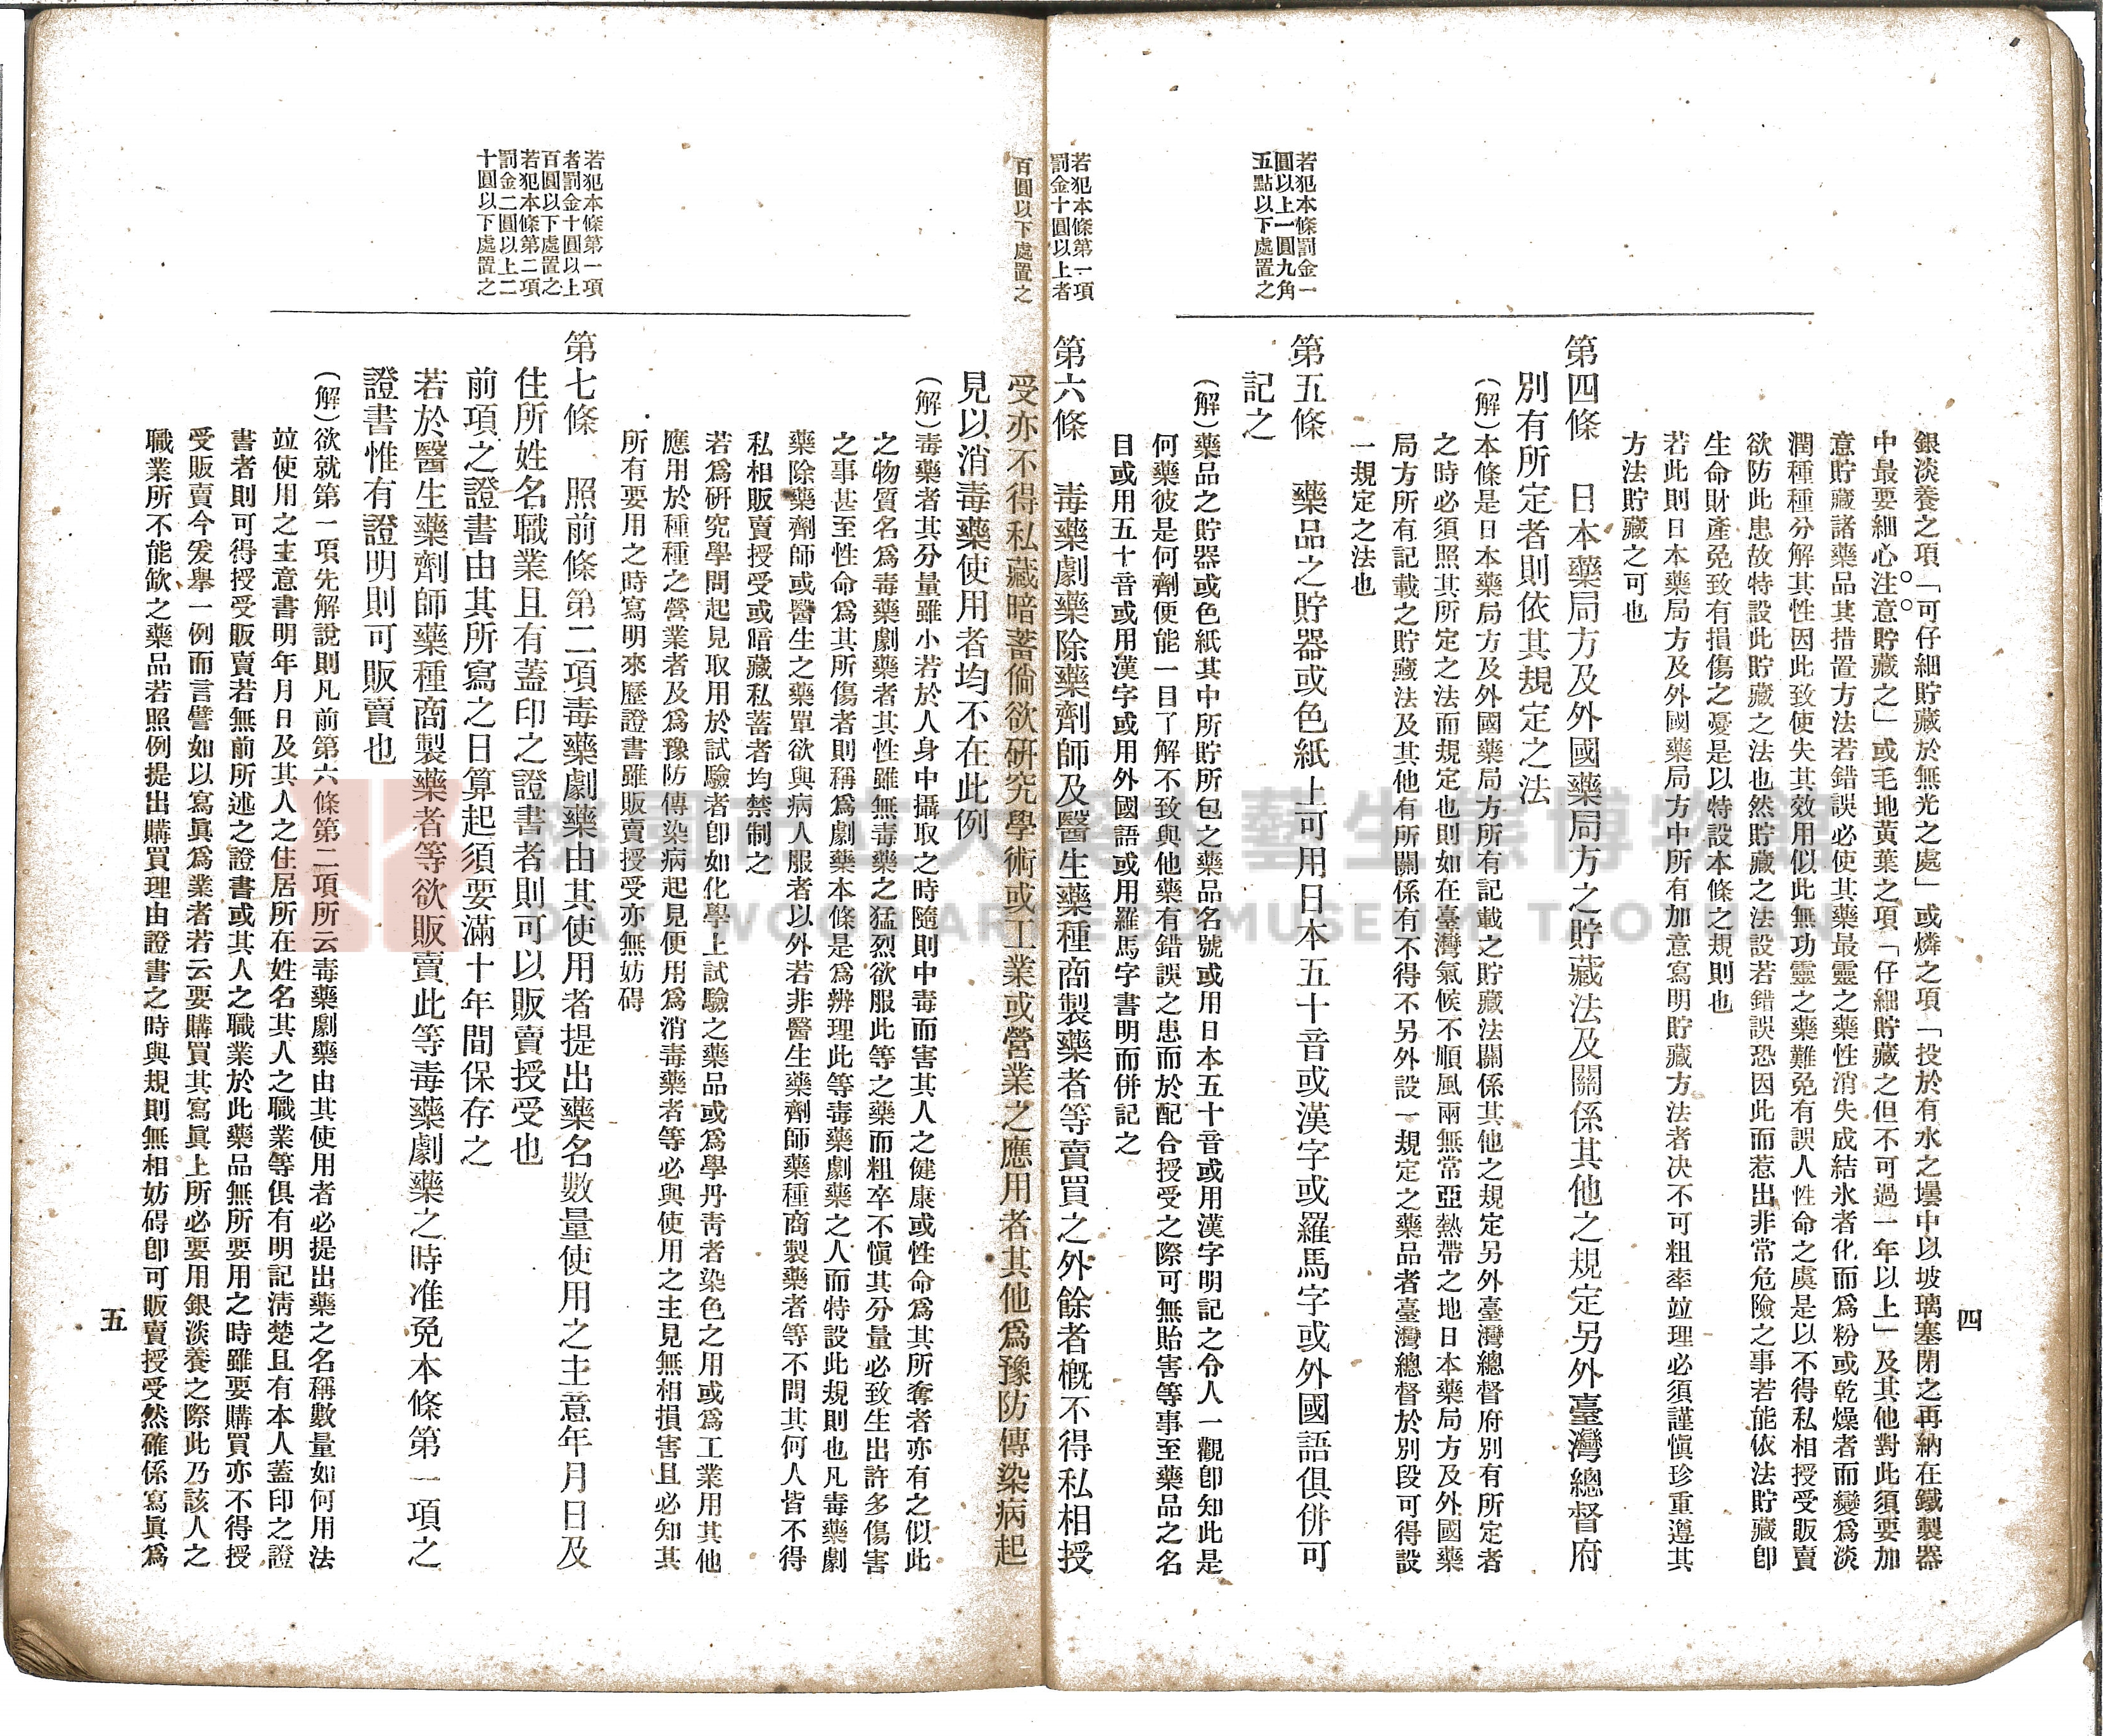 四
銀淡養之項「可仔細貯藏於無光之處」或燐之項「投於有水之壜中以坡璃塞閉之再納在鐵製器
中最要細心注意貯藏之」或毛地黃葉之項「仔細貯藏之但不可過一年以上」及其他對此須要加
意貯藏諸藥品其措置方法若錯誤必使其藥最靈之藥性消失成結氷者化而爲粉或乾燥者而變爲淡
潤種種分解其性因此致使失其效用似此無功靈之藥難免有誤人性命之虞是以不得私相授受販賣
欲防此患故特設此貯藏之法也然貯藏之法設若錯誤恐因此而惹出非常危險之事若能依法貯藏卽
生命財產免致有損傷之憂是以特設本條之規則也
若此則日本藥局方及外國藥局方中所有加意寫明貯藏方法者决不可粗率竝理必須謹愼珍重遵其
方法貯藏之可也
第四條　日本藥局方及外國藥局方之貯藏法及關係其他之規定另外臺灣總督府
別有所定者則依其規定之法
(解)本條是日本藥局方及外國藥局方所有記載之貯藏法關係其他之規定另外臺灣總督府別有所定者
之時必須照其所定之法而規定也則如在臺灣氣候不順風雨無常亞熱帶之地日本藥局方及外國藥
局方所有記載之貯藏法及其他有所關係有不得不另外設一規定之藥品者臺灣總督於別段可得設
一規定之法也
若犯本條罰金一
圓以上一圓九角
五點以下處置之
第五條　藥品之貯器或色紙上可用日本五十音或漢字或羅馬字或外國語俱併可
記之
(解)藥品之貯器或色紙其中所貯所包之藥品名號或用日本五十音或用漢字明記之令人一觀卽知此是
何藥彼是何劑便能一目了解不致與他藥有錯誤之患而於配合授受之際可無貽害等事至藥品之名
目或用五十音或用漢字或用外國語或用羅馬字書明而併記之
若犯本條第一項
罰金十圓以上者
百圓以下處置之
第六條　毒藥劇藥除藥劑師及醫生藥種商製藥者等賣買之外餘者槪不得私相授
受亦不得私藏暗蓄倘欲硏究學術或工業或營業之應用者其他爲豫防傳染病起
見以消毒藥使用者均不在此例
(解)毒藥者其分量雖小若於人身中攝取之時隨則中毒而害其人之健康或性命爲其所奪者亦有之似此
之物質名爲毒藥劇藥者其性雖無毒藥之猛烈欲服此等之藥而粗卒不愼其分量必致生出許多傷害
之事甚至性命爲其所傷者則稱爲劇藥本條是爲辨理此等毒藥劇藥之人而特設此規則也凡毒藥劇
藥除藥劑師或醫生之藥單欲與病人服者以外若非醫生藥劑師藥種商製藥者等不問其何人皆不得
私相販賣授受或暗藏私蓄者均禁制之
若爲硏究學問起見取用於試驗者卽如化學上試驗之藥品或爲學丹靑者染色之用或爲工業用其他
應用於種種之營業者及爲豫防傳染病起見便用爲消毒藥者等必與使用之主見無相損害且必知其
所有要用之時寫明來歷證書雖販賣授受亦無妨碍
若犯本條第一項
者罰金十圓以上
百圓以下處置之
若犯本條第二項
罰金二圓以上二
十圓以下處置之
第七條　照前條第二項毒藥劇藥由其使用者提出藥名數量使用之主意年月日及
住所姓名職業且有蓋印之證書者則可以販賣授受也
前項之證書由其所寫之日算起須要滿十年間保存之
若於醫生藥劑師藥種商製藥者等欲販賣此等毒藥劇藥之時准免本條第一項之
證書惟有證明則可販賣也
(解)欲就第一項先解說則凡前第六條第二項所云毒藥劇藥由其使用者必提出藥之名稱數量如何用法
竝使用之主意書明年月日及其人之住居所在姓名其人之職業等俱有明記淸楚且有本人蓋印之證
書者則可得授受販賣若無前所述之證書或其人之職業於此藥品無所要用之時雖要購買亦不得授
受販賣今爰舉一例而言譬如以寫眞爲業者若云要購買其寫眞上所必要用銀淡養之際此乃該人之
職業所不能缺之藥品若照例提出購買理由證書之時與規則無相妨碍卽可販賣授受然確係寫眞爲
五
桃園市立大溪木藝生態博物館
DAXI WOOD ART ECOMUSEUM, TAOYUAN